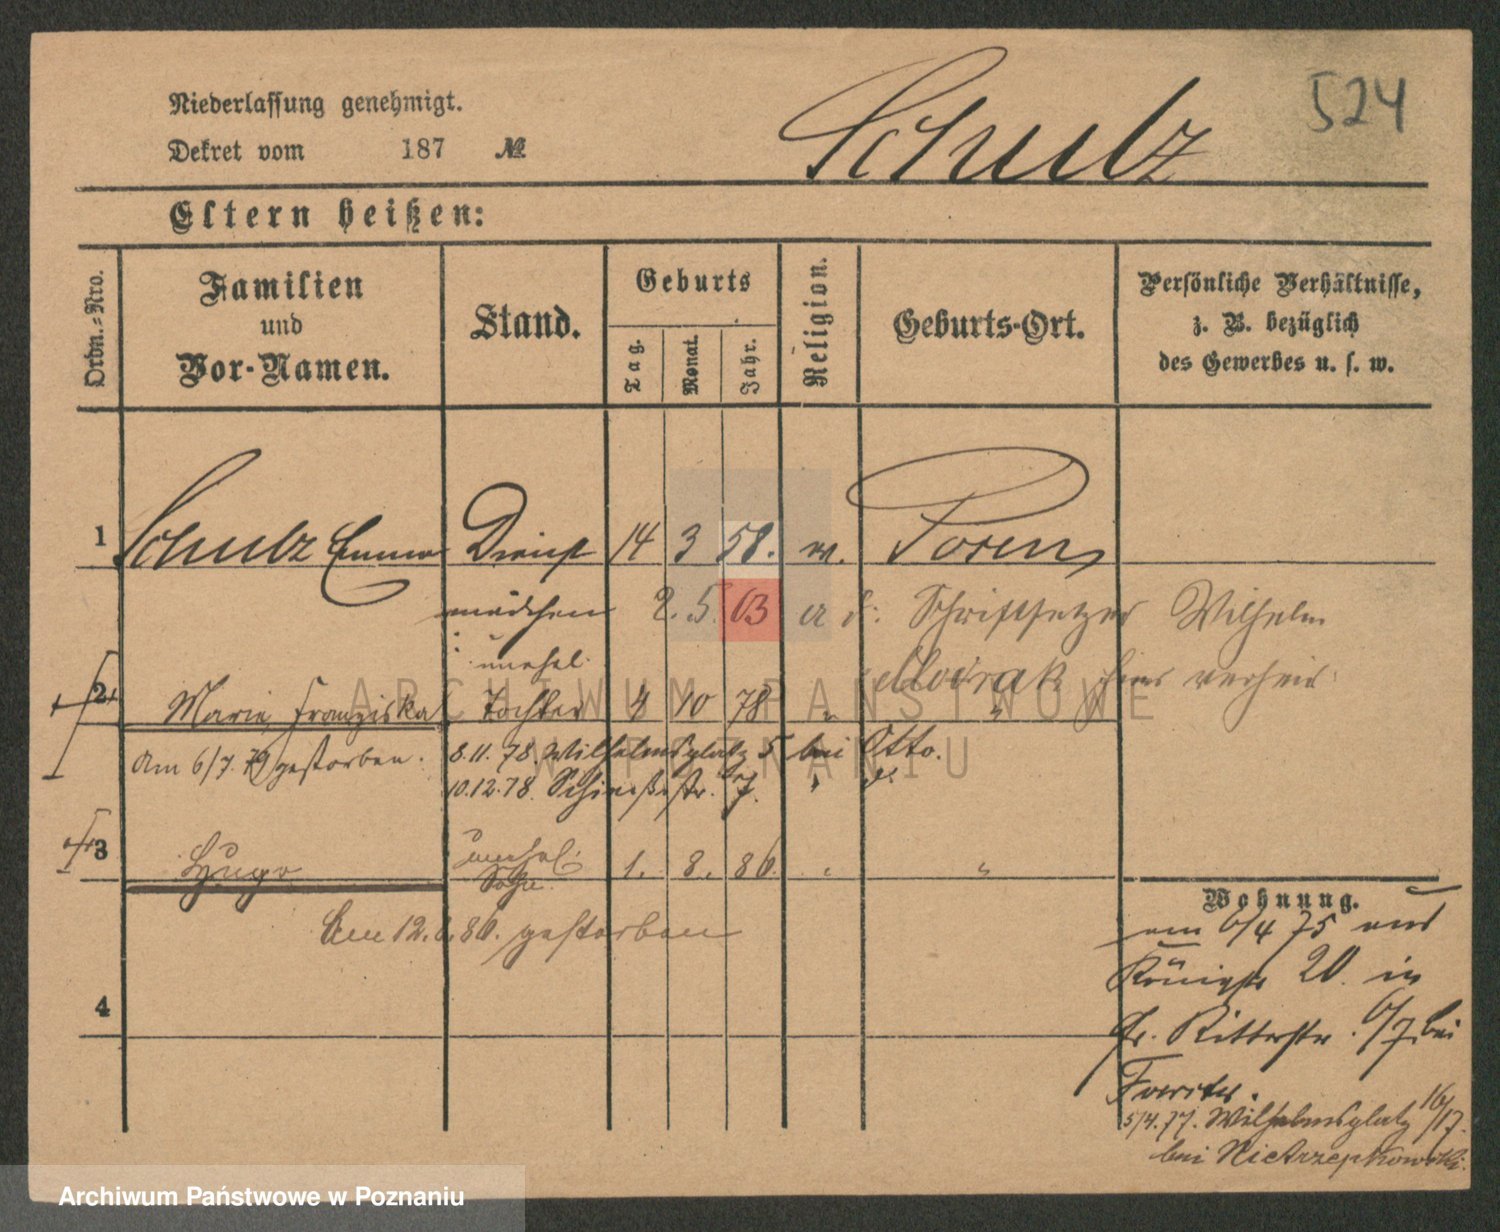 524
Niederlassung genehmigt.
Dekret vom 187 №
Schulz
Eltern heißen:
Ordn.-Nro.
Familien
und
Vor-Namen.
Stand.
Geburts
Tag.
Monat.
Jahr.
Religion.
Geburts-Ort.
Persönliche Verhältnisse,
z. B. bezüglich
des Gewerbes u. s. w.
1 Schulz Emma Dienst 14 3 58. Posen
mädchen 2. 5. 63 Schriftsetzer Wilhelm
unehl.
2 Marie Franziska Tochter 4 10 78 "
am 6/7. 79 gestorben. 8.11.78. Wilhelmsplatz 5 bei Otto.
10.12.78. Schießstr. 7. "
3 Hugo unehel. 1. 8. 86. " "
Sohn.
Am 12. 86. gestorben
4
Wohnung.
am 6/4 75 aus
Königstr 20. in
Gr. Ritterstr. 6/7. bei
5/4.77. Wilhelmsplatz 16/17.
bei
ARCHIWUM PAŃSTWOWE
W POZNANIU
Archiwum Państwowe w Poznaniu